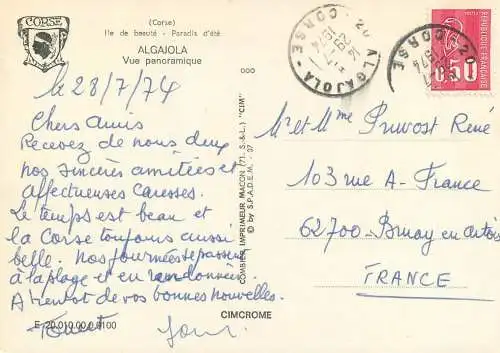 CORSE
(Corse)
Ile de beauté - Paradis d'été
ALGAJOLA
Vue panoramique
le 28/7/74
Chers Amis
Recevez de nous deux
nos sincères amitiées et
affectueuses Caresses.
Le temps est beau et
la Corse toujours aussi
belle. Nos journées se passent
à la plage et en randonnées.
A bientot de vos bonnes nouvelles.
E 20.010.00.0.0100
CIMCROME
COMBIER IMPRIMEUR MACON (71. S.-&-L.) "CIM"
© by S.P.A.D.E.M.
000
20 ALGAJOLA
CORSE
1974
0,50
Mr et Mme Pruvost René
103 rue A - France
62700 - Bruay en Artois
FRANCE